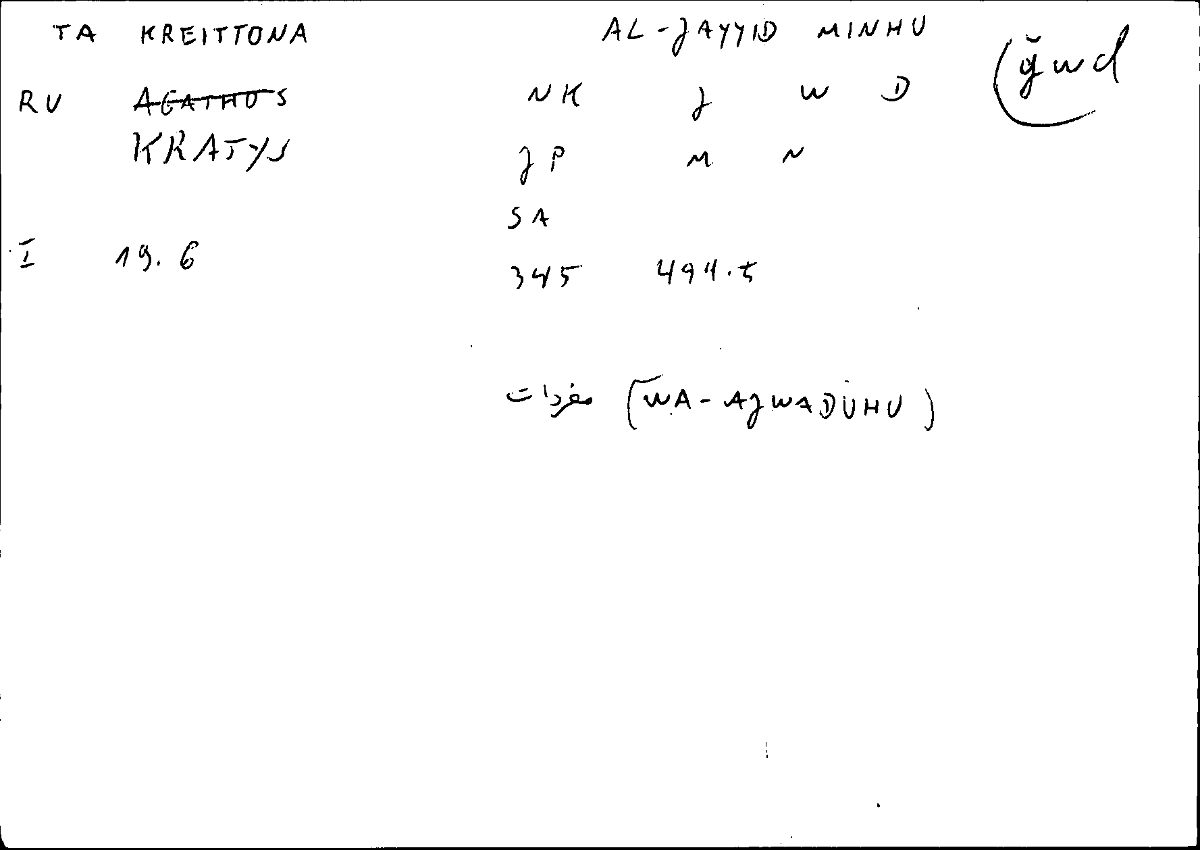 TA KREITTONA AL-JAYYID MINHU (ǧwd
RU AGATHOS NK J W D
KRATYS JP M N
SA
I 19.6 345 494.5
مفردات (WA-AJWADUHU)